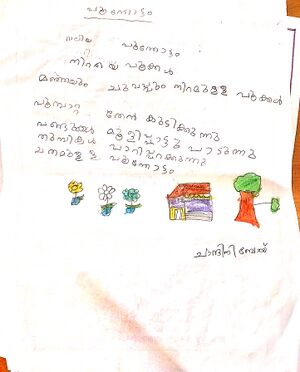 പൂന്തോട്ടം
നല്ല പൂന്തോട്ടം
നിറയെ പൂക്കൾ
മഞ്ഞയും ചുവപ്പും നിറമുള്ള പൂക്കൾ
പൂമ്പാറ്റ തേൻ കുടിക്കുന്നു
വണ്ടുകൾ മൂളിപ്പാട്ടു പാടുന്നു
തുമ്പികൾ പാറിപ്പറക്കുന്നു
പൂന്തോട്ടം
ചാന്ദിനി